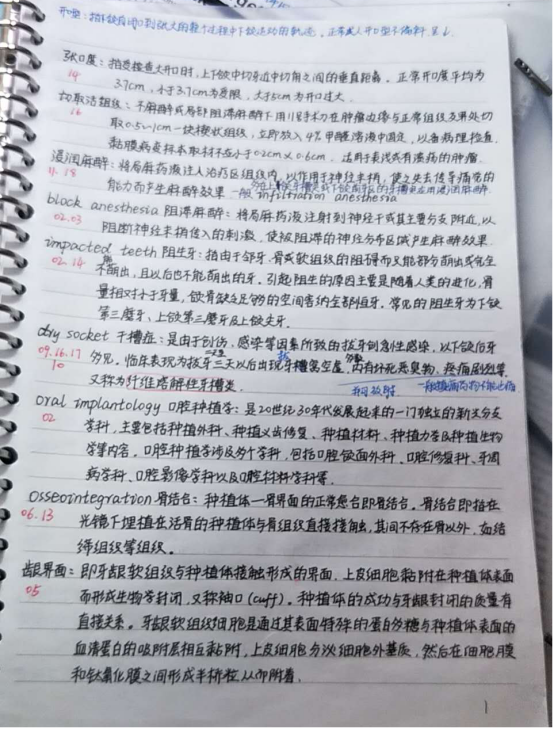 开口型：指下颌自闭口到张大的整个过程中下颌运动的轨迹，正常成人开口型不偏斜，呈↓
张口度：指受检查大开口时，上下颌中切牙近中切角之间的垂直距离。正常开口度平均为
14
3.7cm，小于3.7cm为受限，大于5cm为开口过大。
切取活组织：于麻醉或局部阻滞麻醉下用11号手术刀在肿瘤边缘与正常组织交界处切
16
取0.5~1cm一块楔状组织，立即放入4%甲醛溶液中固定，以备病理检查
黏膜病变标本取材不应小于0.2cm×0.6cm。适用于表浅或有溃疡的肿瘤.
浸润麻醉：将局麻药液注入治疗区组织内，以作用于神经末梢，使之失去传导痛觉的
11.18
能力而产生麻醉效果 infiltration anesthesia
block anesthesia 阻滞麻醉：将局麻药液注射到神经干或其主要分支附近，以
02.03
阻断神经末梢传入的刺激，使被阻滞的神经分布区域产生麻醉效果.
impacted teeth 阻生牙：指由于邻牙、骨或软组织的阻碍而只能部分萌出或完全
02.14
不能萌出，且以后也不能萌出的牙。引起阻生的原因主要是随着人类的进化，骨
量相对小于牙量，颌骨缺乏足够的空间容纳全部恒牙。常见的阻生牙为下颌
第三磨牙、上颌第三磨牙及上颌尖牙.
dry socket 干槽症：是由于创伤、感染等因素所致的拔牙创急性感染，以下颌后牙
09.16.17
多见，临床表现为拔牙三天以后出现牙槽窝空虚，内有坏死恶臭物，疼痛剧烈等
10
又称为纤维溶解性牙槽炎
oral implantology 口腔种植学：是20世纪30年代发展起来的一门独立的新兴分支
02
学科，主要包括种植外科、种植义齿修复、种植材料、种植力学及种植生物
学等内容，口腔种植学涉及多个学科，包括口腔颌面外科、口腔修复科、牙周
病学科、口腔影像学科以及口腔材料学科等.
osseointegration 骨结合：种植体—骨界面的正常愈合即骨结合。骨结合即指在
06.13
光镜下埋植在活骨的种植体与骨组织直接接触，其间不存在骨以外，如结
缔组织等组织。
龈界面：即牙龈软组织与种植体接触形成的界面，上皮细胞黏附在种植体表面
05
而形成生物学封闭，又称袖口(cuff)。种植体的成功与牙龈封闭的质量有
直接关系。牙龈软组织细胞是通过其表面特殊的蛋白多糖与种植体表面的
血清蛋白的吸附层相互黏附，上皮细胞分泌细胞外基质，然后在细胞膜
和钛氧化膜之间形成半桥粒从而附着.
1